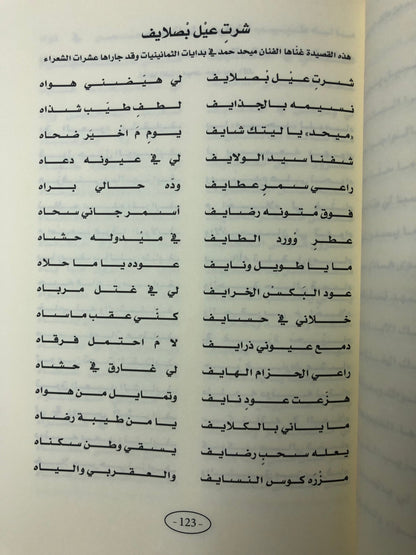 شرتِ عيْل بْصلايف
هذه القصيدة غنّاها الفنان ميحد حمد في بدايات الثمانينيات وقد جاراها عشرات الشعراء
شرتِ عيْل بْصلايف لي هيّضني هواه
نسيمه بالجذايف لطفِ طيّب شذاه
«ميحد» يا ليتك شايف يومِ مَ اخْيَر ضحاه
شفنا سيد الولايف لي في عيونه دعاه
راعي سمرِ عطايف ودّه حالي براه
فوق مْتونه رضايف أسمر جاني سحاه
عطرٍ وورد الطايف في ميْدوله حشاه
ما يا طويل ونايف عوده يا ما حلاه
عود البَكس الخرايف لي في غتل مرباه
خلاني في حسايف كنّي عقب ماساه
دمع عيوني ذرايف لا مَ احتمل فرقاه
راعي الحزام الهايف لي غارق في حشاه
هزّعت عودٍ نايف وتمايل من هواه
ما ياني بالكلايف يا من طيبة رضاه
يعله سحبِ رضايف يسقي وطن سكناه
مزْرَه كوس النسايف والعقربي والياه
- 123 -